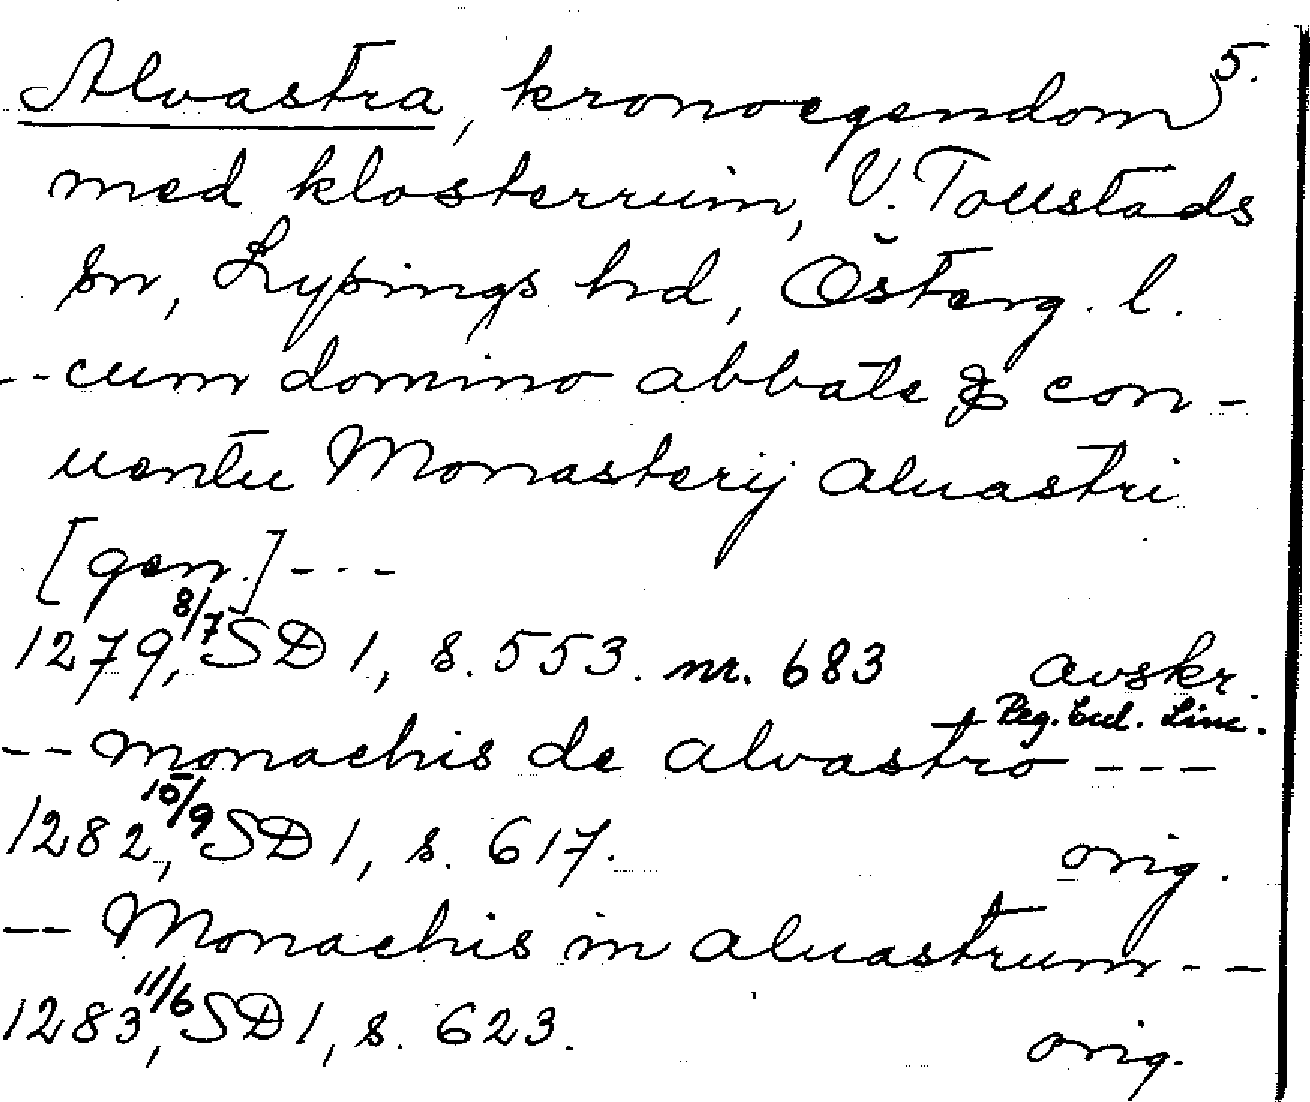 5.
Alvastra, kronoegendom
med klosterruin, V. Tollstads
sn, Lysings hd, Österg. l.
-- cum domino abbate & con-
uentu Monasterij aluastri
[gen.] ---
1279, 8/7 SD 1, s. 553. nr. 683 avskr.
Reg. Eccl. Linc.
-- monachis de alvastro ---
1282, 10/9 SD 1, s. 617. orig.
-- Monachis in aluastrum --
1283, 11/6 SD 1, s. 623. orig.